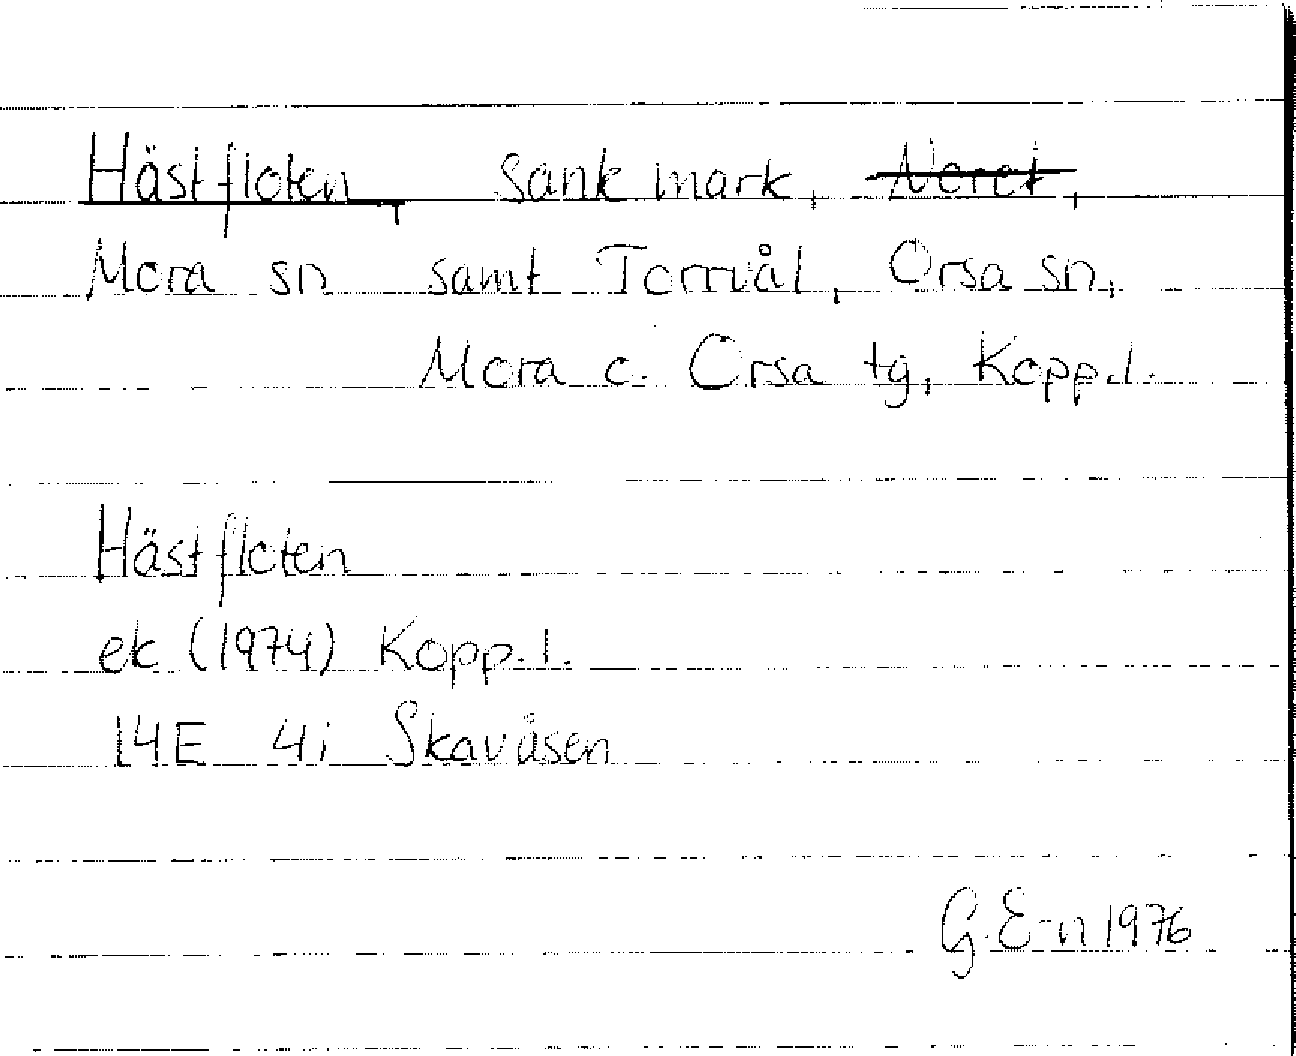 Hästfloten, sank mark, Neret,
Mora sn samt Torrvål, Orsa sn,
Mora o. Orsa tg, Kopp.l.
Hästfloten
ek (1974) Kopp.l.
14E 4i Skavåsen
G. E-n 1976